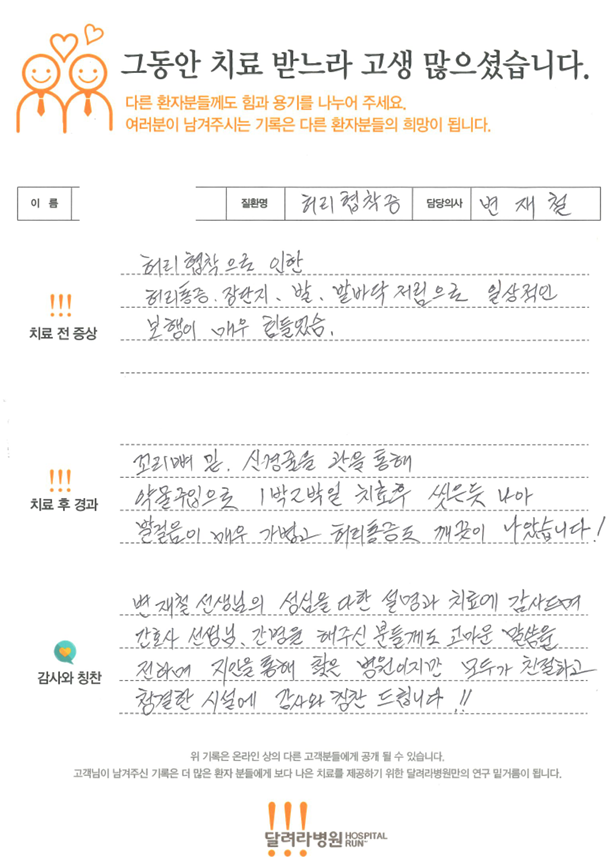 그동안 치료 받느라 고생 많으셨습니다.
다른 환자분들께도 힘과 용기를 나누어 주세요.
여러분이 남겨주시는 기록은 다른 환자분들의 희망이 됩니다.
이 름 질환명 허리협착증 담당의사 변 재 철
허리협착으로 인한
허리통증, 장단지, 발, 발바닥 저림으로 일상적인
!!!
치료 전 증상
보행이 매우 힘들었슴.
꼬리뼈 밑, 신경줄을 관을 통해
!!!
치료 후 경과
약물주입으로 1박2박일 치료후 씻은듯 나아
발걸음이 매우 가볍고 허리통증도 깨끗이 나았습니다!
변재철 선생님의 성심을 다한 설명과 치료에 감사드며
간호사 선생님, 간병을 해주신 분들께도 고마운 말씀을
감사와 칭찬
전하며 지인을 통해 찾은 병원이지만 모두가 친절하고
청결한 시설에 감사와 칭찬 드립니다!!
위 기록은 온라인 상의 다른 고객분들에게 공개 될 수 있습니다.
고객님이 남겨주신 기록은 더 많은 환자 분들에게 보다 나은 치료를 제공하기 위한 달려라병원만의 연구 밑거름이 됩니다.
!!!
달려라병원 HOSPITAL RUN™